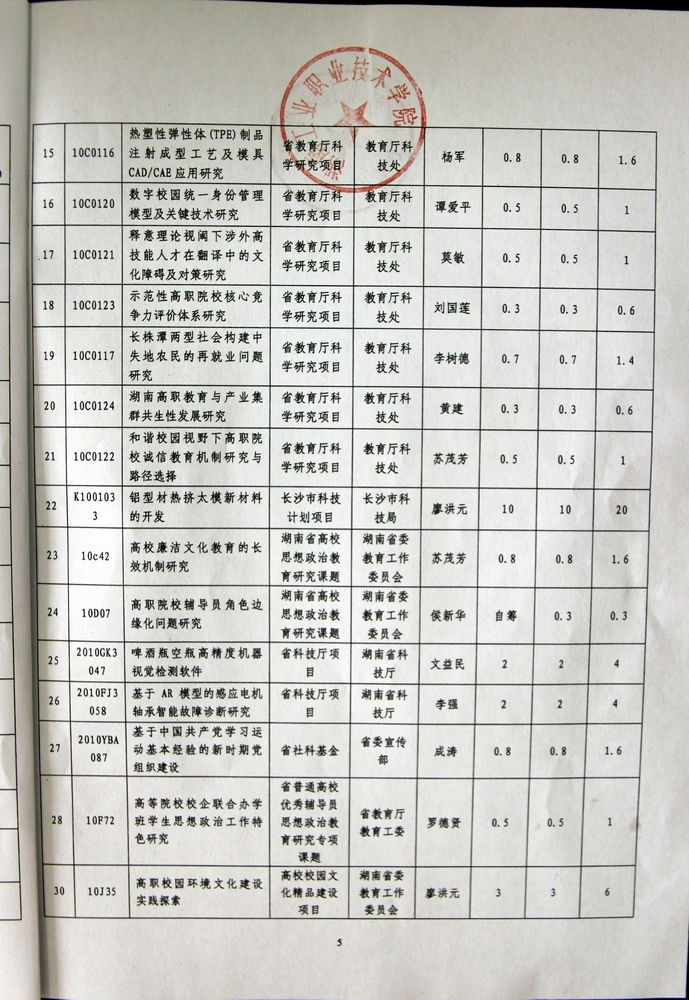 工业职业技术学院
15 10C0116 热塑性弹性体(TPE)制品注射成型工艺及模具CAD/CAE应用研究 省教育厅科学研究项目 教育厅科技处 杨军 0.8 0.8 1.6
16 10C0120 数字校园统一身份管理模型及关键技术研究 省教育厅科学研究项目 教育厅科技处 谭爱平 0.5 0.5 1
17 10C0121 释意理论视阈下涉外高技能人才在翻译中的文化障碍及对策研究 省教育厅科学研究项目 教育厅科技处 莫敏 0.5 0.5 1
18 10C0123 示范性高职院校核心竞争力评价体系研究 省教育厅科学研究项目 教育厅科技处 刘国莲 0.3 0.3 0.6
19 10C0117 长株潭两型社会构建中失地农民的再就业问题研究 省教育厅科学研究项目 教育厅科技处 李树德 0.7 0.7 1.4
20 10C0124 湖南高职教育与产业集群共生性发展研究 省教育厅科学研究项目 教育厅科技处 黄建 0.3 0.3 0.6
21 10C0122 和谐校园视野下高职院校诚信教育机制研究与路径选择 省教育厅科学研究项目 教育厅科技处 苏茂芳 0.5 0.5 1
22 K1001033 铝型材热挤太模新材料的开发 长沙市科技计划项目 长沙市科技局 廖洪元 10 10 20
23 10c42 高校廉洁文化教育的长效机制研究 湖南省高校思想政治教育研究课题 湖南省委教育工作委员会 苏茂芳 0.8 0.8 1.6
24 10D07 高职院校辅导员角色边缘化问题研究 湖南省高校思想政治教育研究课题 湖南省委教育工作委员会 侯新华 自筹 0.3 0.3
25 2010GK3047 啤酒瓶空瓶高精度机器视觉检测软件 省科技厅项目 湖南省科技厅 文益民 2 2 4
26 2010FJ3058 基于 AR 模型的感应电机轴承智能故障诊断研究 省科技厅项目 湖南省科技厅 李强 2 2 4
27 2010YBA087 基于中国共产党学习运动基本经验的新时期党组织建设 省社科基金 省委宣传部 成涛 0.8 0.8 1.6
28 10F72 高等院校校企联合办学班学生思想政治工作特色研究 省普通高校优秀辅导员思想政治教育研究专项课题 省教育厅教育工委 罗德贤 0.5 0.5 1
30 10J35 高职校园环境文化建设实践探索 高校校园文化精品建设项目 湖南省委教育工作委员会 廖洪元 3 3 6
5